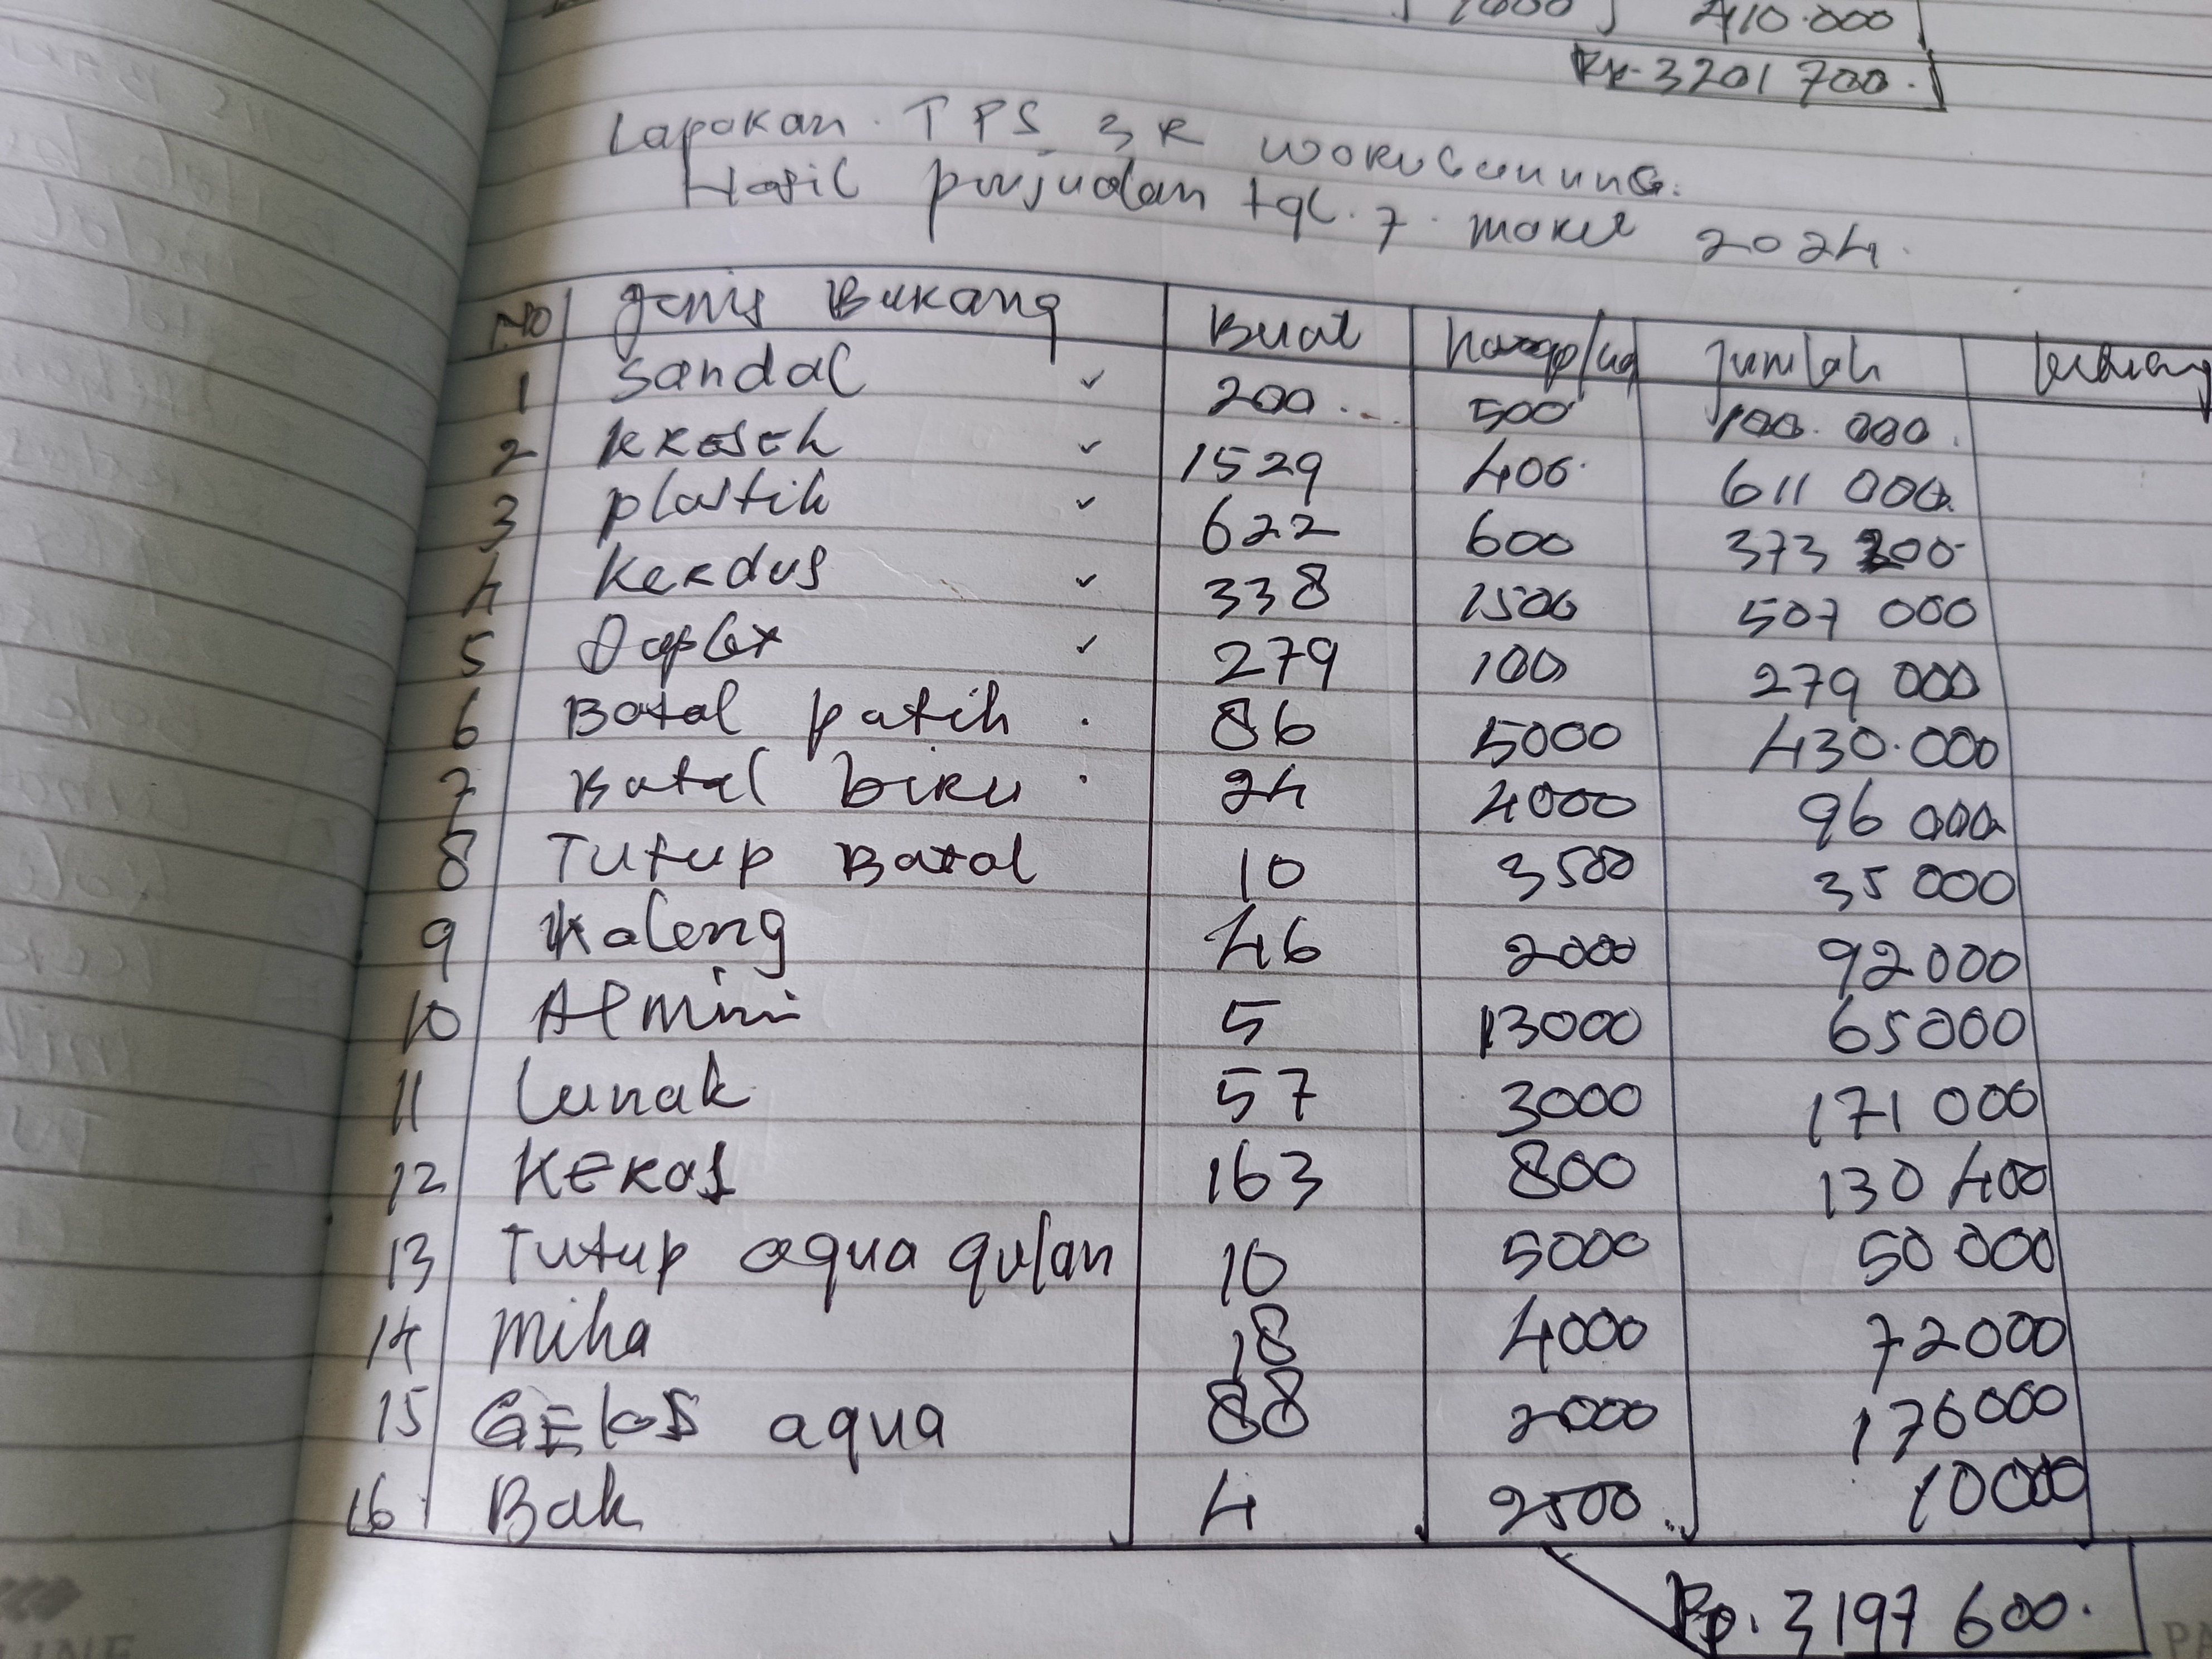 1000 410.000
Rp. 3201 700.
Laporan. TPS 3R WORUGUNUNG.
Hasil penjualan tgl. 7. maret 2024.
No Jenis Barang Berat Harga/kg Jumlah
1 Sandal ✓ 200 500 100.000
2 Kresek ✓ 1529 400 611 000
3 plastik ✓ 622 600 373 200
4 Kerdus ✓ 338 1500 507 000
5 Duplex ✓ 279 100 279 000
6 Botol putih . 86 5000 430.000
7 Botol biru . 24 4000 96 000
8 Tutup Botol 10 3500 35 000
9 Kaleng 46 2000 92000
10 Almini 5 13000 65000
11 Lunak 57 3000 171 000
12 KERAS 163 800 130 400
13 Tutup aqua gulan 10 5000 50 000
14 Mika 18 4000 72000
15 GELAS aqua 88 2000 176000
16 Bak 4 2500 10000
Rp. 3197 600.